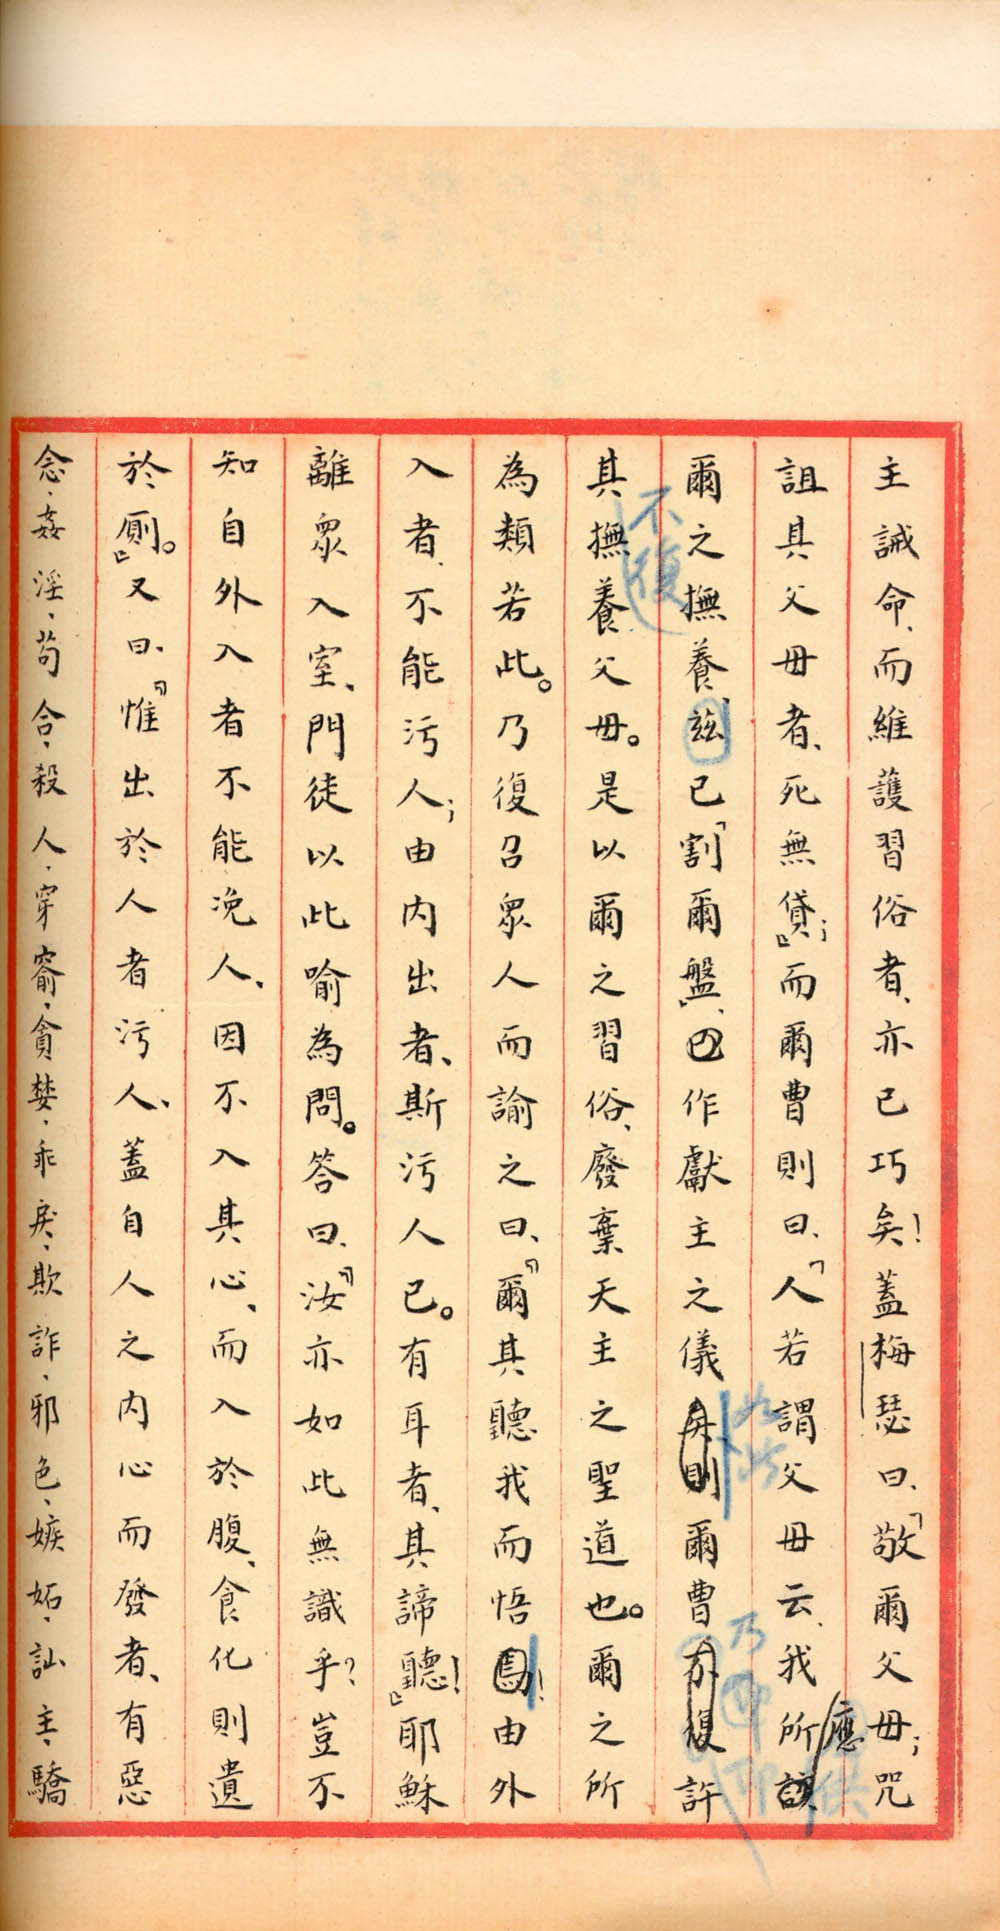 主誡命、而維護習俗者、亦已巧矣！蓋梅瑟曰、「敬爾父母；咒
詛其父母者、死無貸』；而爾曹則曰、「人若謂父母云、我所該應
爾之撫養、茲已「割爾盤」、已作獻主之儀矣則爾曹不復許
其撫養父母。是以爾之習俗、廢棄天主之聖道也。爾之所
不復
為類若此。乃復召眾人而諭之曰、『爾其聽我而悟焉！由外
入者、不能污人；由内出者、斯污人已。有耳者、其諦聽！』耶穌
離眾入室、門徒以此喻為問。答曰、『汝亦如此無識乎？豈不
知自外入者不能浼人、因不入其心、而入於腹、食化則遺
於廁。』又曰、『惟出於人者污人、蓋自人之内心而發者、有惡
念、姦淫、苟合、殺人、穿窬、貪婪、乖戾、欺詐、邪色、嫉妬、訕主、驕